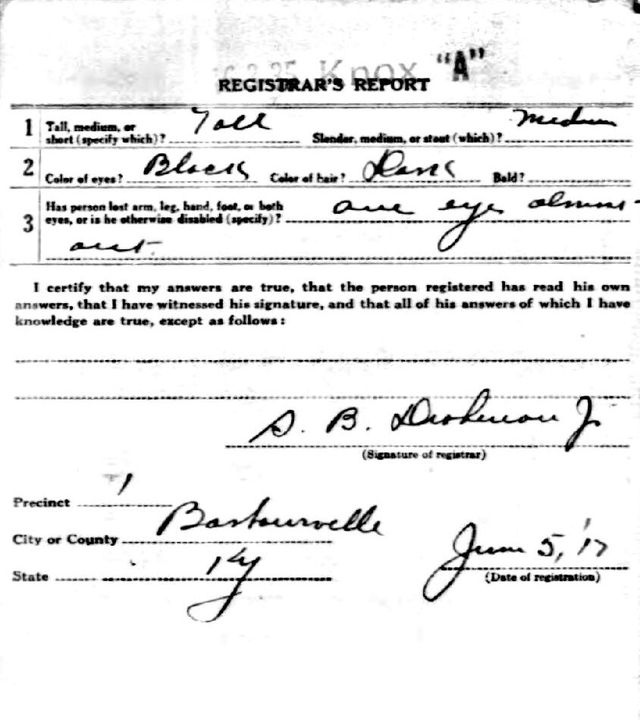 Knox "A"
REGISTRAR'S REPORT
1 Tall, medium, or short (specify which)? Tall Slender, medium, or stout (which)? Medium
2 Color of eyes? Black Color of hair? Dark Bald?
3 Has person lost arm, leg, hand, foot, or both
eyes, or is he otherwise disabled (specify)? one eye almost
out
I certify that my answers are true, that the person registered has read his own
answers, that I have witnessed his signature, and that all of his answers of which I have
knowledge are true, except as follows:
S. B. Dishman Jr
(Signature of registrar)
Precinct 1
City or County Barbourville
State Ky June 5, '17
(Date of registration)